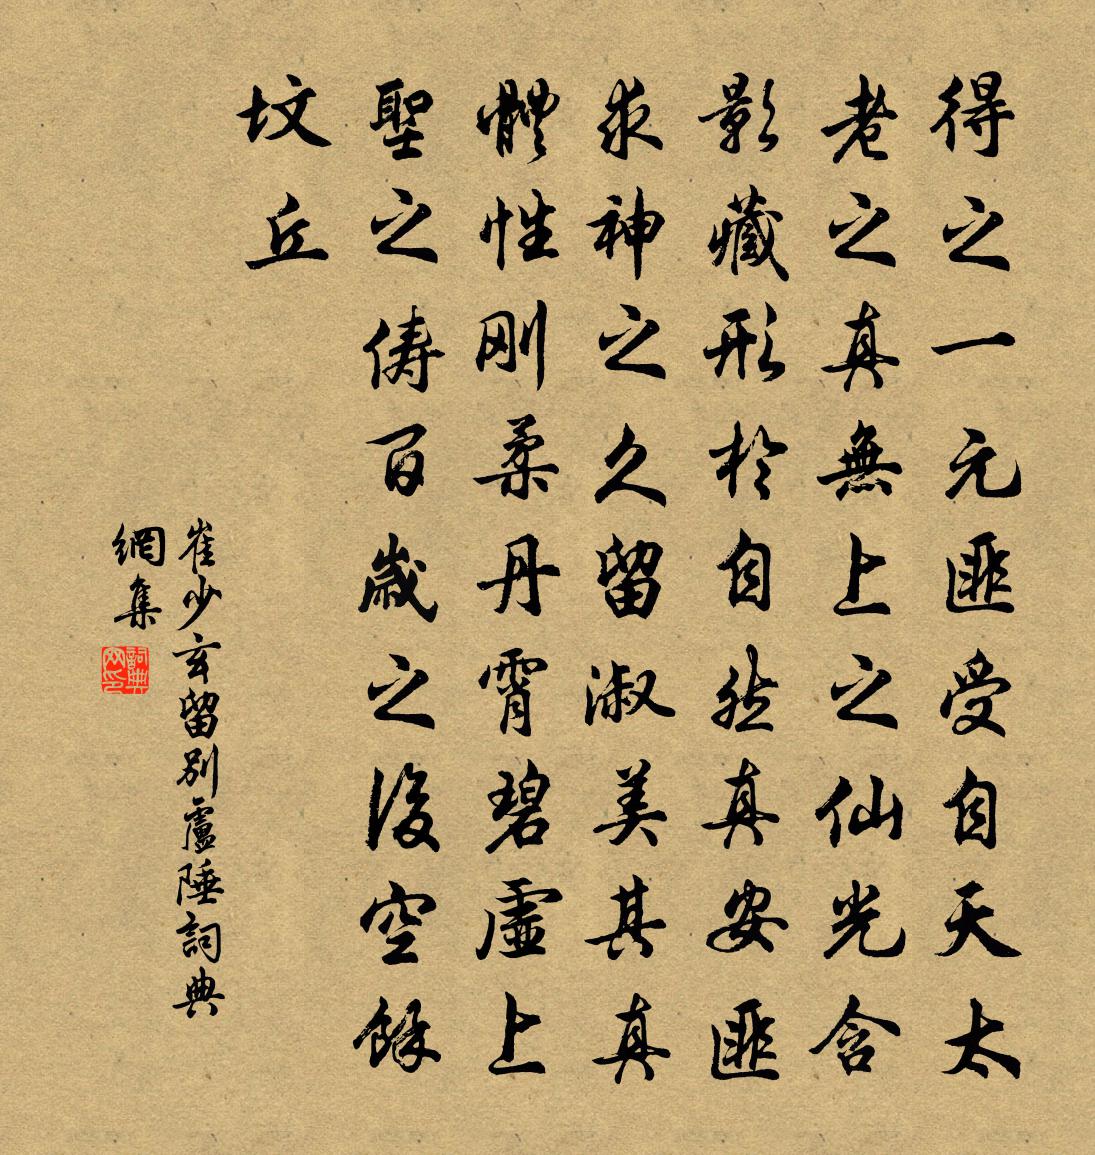 得之一元匪受自天太
老之真無上之仙光含
影藏形於自然真安匪
求神之久留淑美其真
體性刚柔丹霄碧虛上
聖之儔百歲之後空餘
坟丘
崔少玄留別盧陲詞典
網集
詞典网印